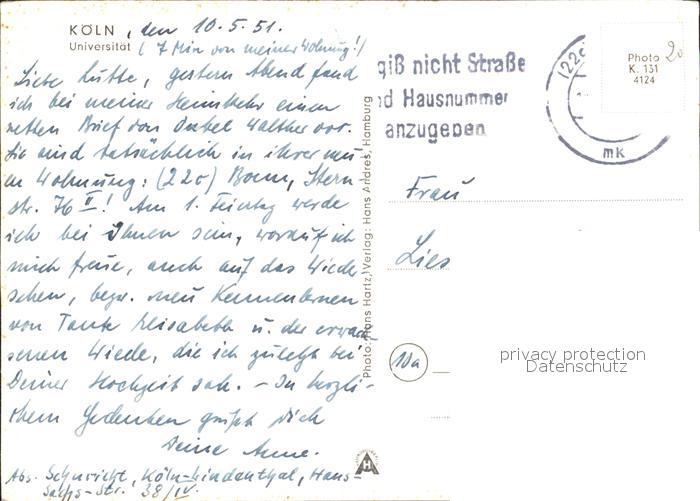 KÖLN, den 10.5.51.
Universität (7 Min von meiner Wohnung!)
Liebe Lutte, gestern Abend fand
ich bei meiner Heimkehr einen
netten Brief von Onkel Walther vor.
Sie sind tatsächlich in ihrer neu-
en Wohnung: (22c) Bonn, Stern
str. 76 II! Am 1. Feiertag werde
ich bei Ihnen sein, worauf ich
mich freue, auch auf das Wieder-
sehen, bezw. neu Kennenlernen
von Tante Elisabeth u. der erwach
senen Wiede, die ich zuletzt bei
Deiner Hochzeit sah. – In herzli-
chem Gedenken grüßt Dich
Deine Anne.
Abs. Schuricht, Köln-Lindenthal, Hans-
Sachs-Str. 38/IV.
Photo: Hans Hartz, Verlag: Hans Andres, Hamburg
giß nicht Straße
nd Hausnummer
anzugeben
(22c)
mk
Photo
K. 131
4124
20
Frau
Lies
10a
privacy protection
Datenschutz